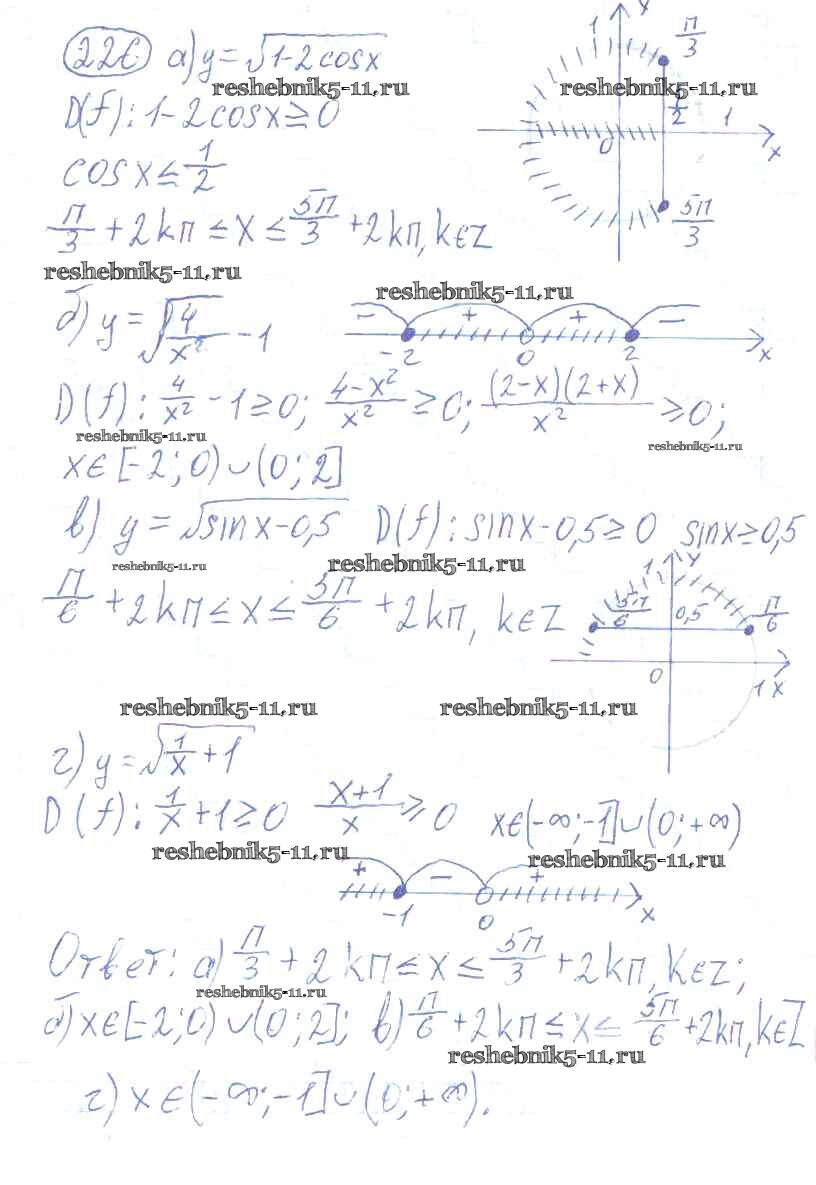 226 а) y = √(1-2cosx)
reshebnik5-11.ru reshebnik5-11.ru
D(f): 1-2cosx ≥ 0
cos x ≤ 1/2
π/3 + 2kπ ≤ x ≤ 5π/3 + 2kπ, k∈Z
y 1 π/3 1/2 1 0 x 5π/3
reshebnik5-11.ru
reshebnik5-11.ru
б) y = √(4/x²) - 1
- + + -
-2 0 2 x
D(f): 4/x² - 1 ≥ 0; (4-x²)/x² ≥ 0; (2-x)(2+x)/x² ≥ 0;
reshebnik5-11.ru reshebnik5-11.ru
x∈[-2;0)∪(0;2]
в) y = √(sinx-0,5) D(f): sinx-0,5 ≥ 0 sinx ≥ 0,5
reshebnik5-11.ru reshebnik5-11.ru
π/6 + 2kπ ≤ x ≤ 5π/6 + 2kπ, k∈Z
1 y 5π/6 0,5 π/6
0 1 x
reshebnik5-11.ru reshebnik5-11.ru
г) y = √(1/x + 1)
D(f): 1/x + 1 ≥ 0 (x+1)/x ≥ 0 x∈(-∞;-1]∪(0;+∞)
reshebnik5-11.ru reshebnik5-11.ru
+ - +
-1 0 x
Ответ: а) π/3 + 2kπ ≤ x ≤ 5π/3 + 2kπ, k∈Z;
reshebnik5-11.ru
б) x∈[-2;0)∪(0;2]; в) π/6 + 2kπ ≤ x ≤ 5π/6 + 2kπ, k∈Z
reshebnik5-11.ru
г) x∈(-∞;-1]∪(0;+∞).